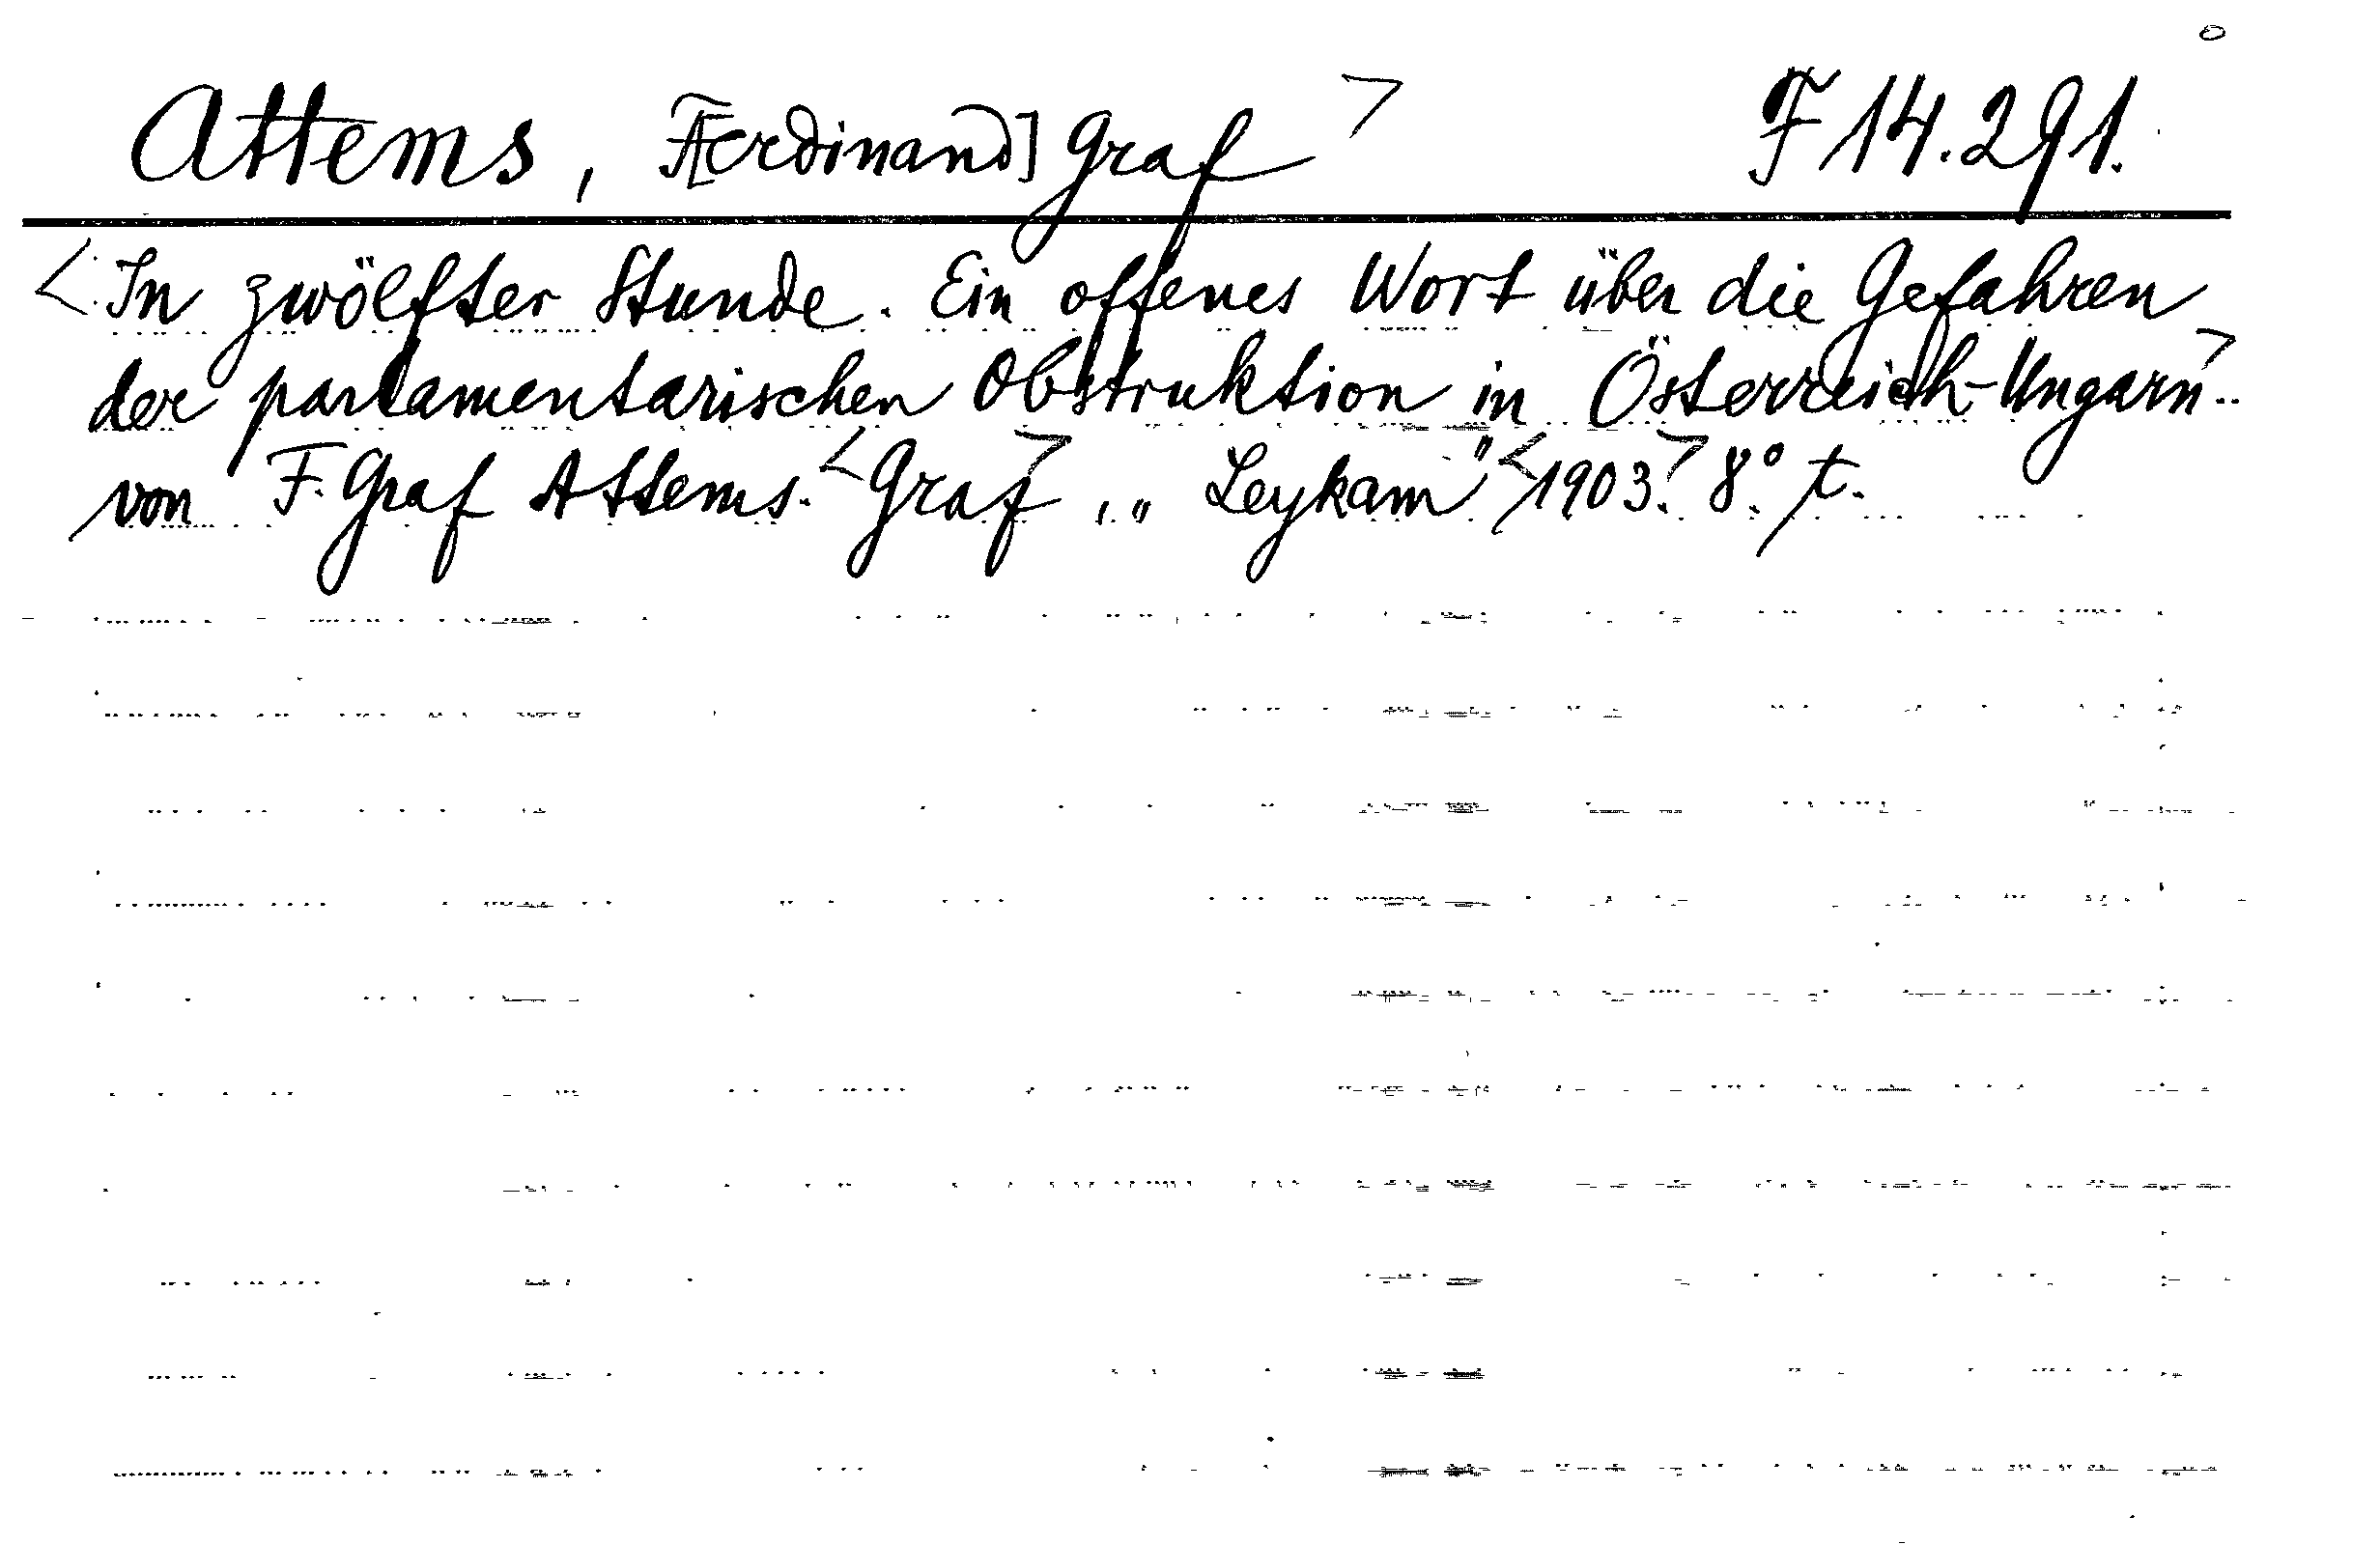 Attems, F[erdinand] Graf > F 14.291.
< In zwölfter Stunde. Ein offenes Wort über die Gefahren
der parlamentarischen Obstruktion in Österreich-Ungarn >.
von F. Graf Attems. < Graz >, „Leykam" < 1903. > 8°. t.